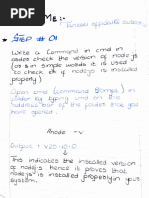 ME:-
STEP # 01
Write a Command in cmd in
order check the version of nodejs
(or s in simple words it is used
to check ok if nodejs is installed
properly)
Open cmd (command Prompt) in
folder by typing cmd on the
address bar of the folder that you
have opened.
node -v
Output: v20.10.0
This indicates the installed version
of nodejs hence it proves that
nodejs is installed properly in your
system.